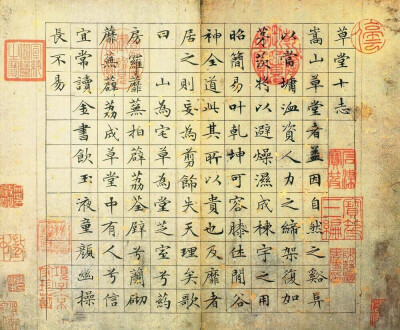 草堂十志
嵩山草堂者蓋因自然之谿阜
以當墉洫資人力之締架復加
茅茨將以避燥濕成棟宇之用
昭簡易叶乾坤可容膝休閒谷
神全道此其所以貴也及靡者
居之則妄為剪飾失天理矣歌
曰山為宅兮草為堂芝室兮葯
房羅蘼蕪拍薜荔荃壁兮蘭砌
蘼蕪薜荔成草堂中有人兮信
宜常讀金書飲玉液童顏幽操
長不易